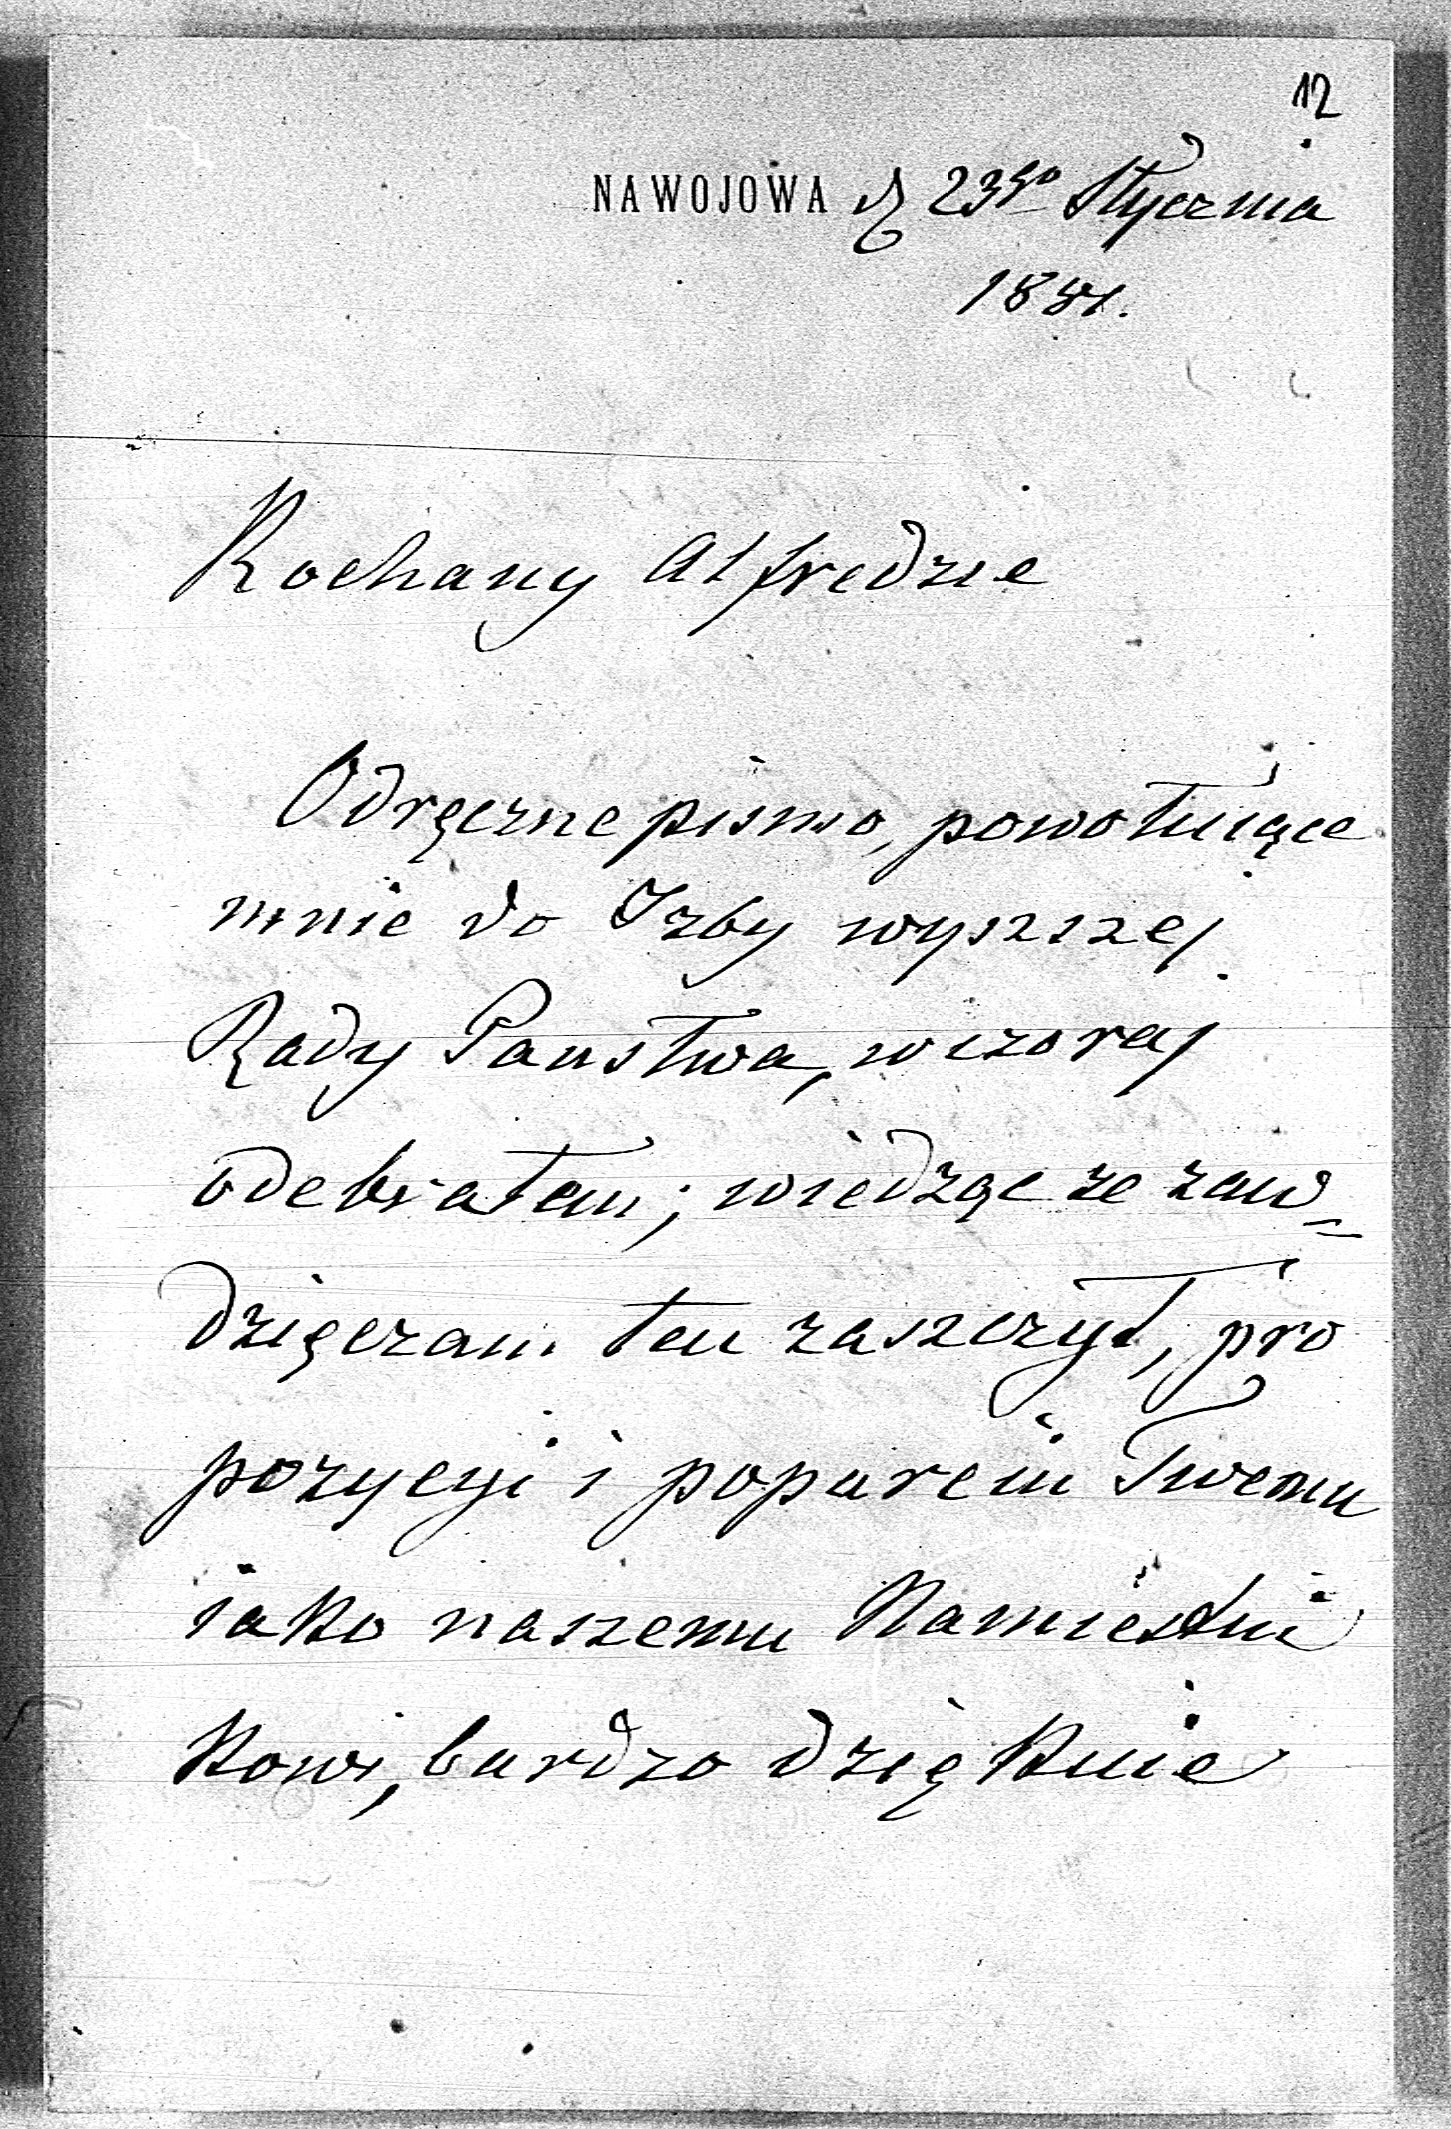 12
NAWOJOWA d 23go Stycznia
1881.
Kochany Alfredzie
Odręczne pismo, powołuiące
mnie do Izby wyszszej
Rady Panstwa, wczoraj
odebrałem; wiedząc ze zaw=
dzięczam ten zaszczyt, pro
pozycyi i poparciu Twemu
iako naszemu Namiestni
kowi, bardzo dzięknie